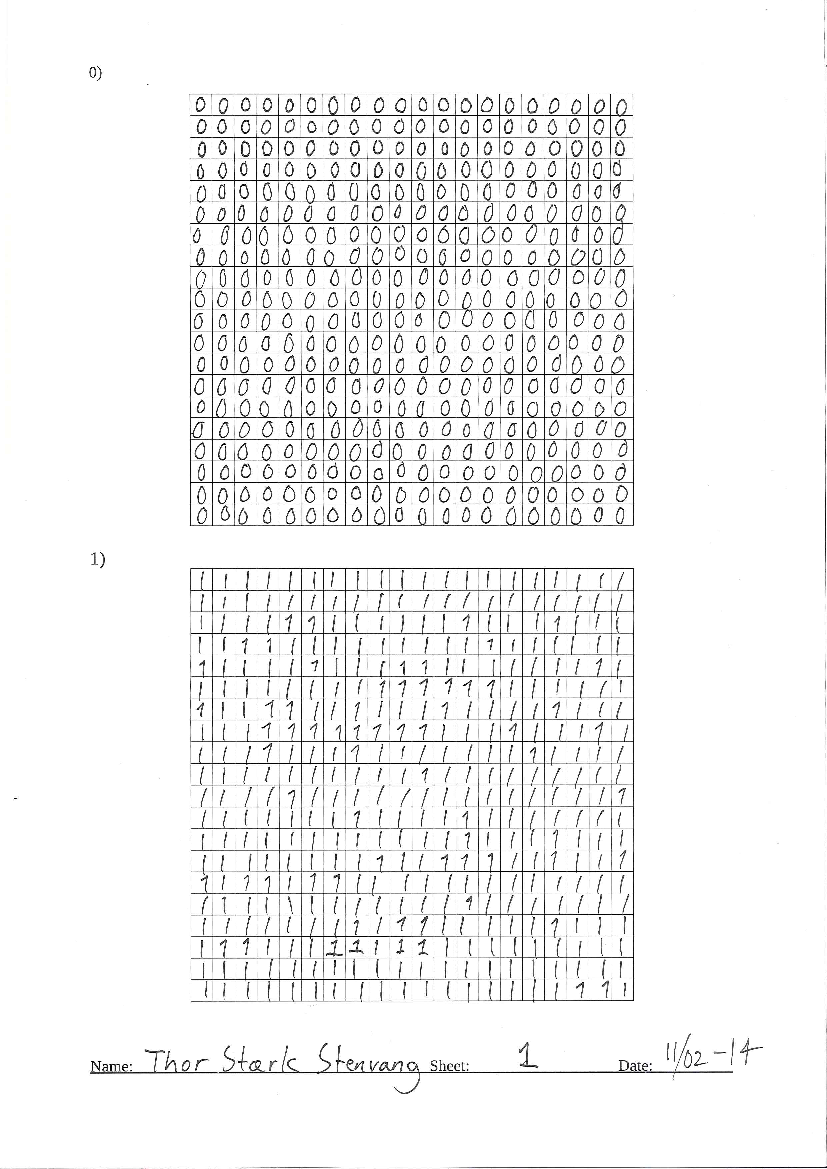 0)
0 0 0 0 0 0 0 0 0 0 0 0 0 0 0 0 0 0 0 0
0 0 0 0 0 0 0 0 0 0 0 0 0 0 0 0 0 0 0 0
0 0 0 0 0 0 0 0 0 0 0 0 0 0 0 0 0 0 0 0
0 0 0 0 0 0 0 0 0 0 0 0 0 0 0 0 0 0 0 0
0 0 0 0 0 0 0 0 0 0 0 0 0 0 0 0 0 0 0 0
0 0 0 0 0 0 0 0 0 0 0 0 0 0 0 0 0 0 0 0
0 0 0 0 0 0 0 0 0 0 0 0 0 0 0 0 0 0 0 0
0 0 0 0 0 0 0 0 0 0 0 0 0 0 0 0 0 0 0 0
0 0 0 0 0 0 0 0 0 0 0 0 0 0 0 0 0 0 0 0
0 0 0 0 0 0 0 0 0 0 0 0 0 0 0 0 0 0 0 0
0 0 0 0 0 0 0 0 0 0 0 0 0 0 0 0 0 0 0 0
0 0 0 0 0 0 0 0 0 0 0 0 0 0 0 0 0 0 0 0
0 0 0 0 0 0 0 0 0 0 0 0 0 0 0 0 0 0 0 0
0 0 0 0 0 0 0 0 0 0 0 0 0 0 0 0 0 0 0 0
0 0 0 0 0 0 0 0 0 0 0 0 0 0 0 0 0 0 0 0
0 0 0 0 0 0 0 0 0 0 0 0 0 0 0 0 0 0 0 0
0 0 0 0 0 0 0 0 0 0 0 0 0 0 0 0 0 0 0 0
0 0 0 0 0 0 0 0 0 0 0 0 0 0 0 0 0 0 0 0
0 0 0 0 0 0 0 0 0 0 0 0 0 0 0 0 0 0 0 0
0 0 0 0 0 0 0 0 0 0 0 0 0 0 0 0 0 0 0 0
1)
1 1 1 1 1 1 1 1 1 1 1 1 1 1 1 1 1 1 1 1
1 1 1 1 1 1 1 1 1 1 1 1 1 1 1 1 1 1 1 1
1 1 1 1 1 1 1 1 1 1 1 1 1 1 1 1 1 1 1 1
1 1 1 1 1 1 1 1 1 1 1 1 1 1 1 1 1 1 1 1
1 1 1 1 1 1 1 1 1 1 1 1 1 1 1 1 1 1 1 1
1 1 1 1 1 1 1 1 1 1 1 1 1 1 1 1 1 1 1 1
1 1 1 1 1 1 1 1 1 1 1 1 1 1 1 1 1 1 1 1
1 1 1 1 1 1 1 1 1 1 1 1 1 1 1 1 1 1 1 1
1 1 1 1 1 1 1 1 1 1 1 1 1 1 1 1 1 1 1 1
1 1 1 1 1 1 1 1 1 1 1 1 1 1 1 1 1 1 1 1
1 1 1 1 1 1 1 1 1 1 1 1 1 1 1 1 1 1 1 1
1 1 1 1 1 1 1 1 1 1 1 1 1 1 1 1 1 1 1 1
1 1 1 1 1 1 1 1 1 1 1 1 1 1 1 1 1 1 1 1
1 1 1 1 1 1 1 1 1 1 1 1 1 1 1 1 1 1 1 1
1 1 1 1 1 1 1 1 1 1 1 1 1 1 1 1 1 1 1 1
1 1 1 1 1 1 1 1 1 1 1 1 1 1 1 1 1 1 1 1
1 1 1 1 1 1 1 1 1 1 1 1 1 1 1 1 1 1 1 1
1 1 1 1 1 1 1 1 1 1 1 1 1 1 1 1 1 1 1 1
1 1 1 1 1 1 1 1 1 1 1 1 1 1 1 1 1 1 1 1
1 1 1 1 1 1 1 1 1 1 1 1 1 1 1 1 1 1 1 1
Name: Thor Stærk Stenvang Sheet: 1 Date: 11/02-14